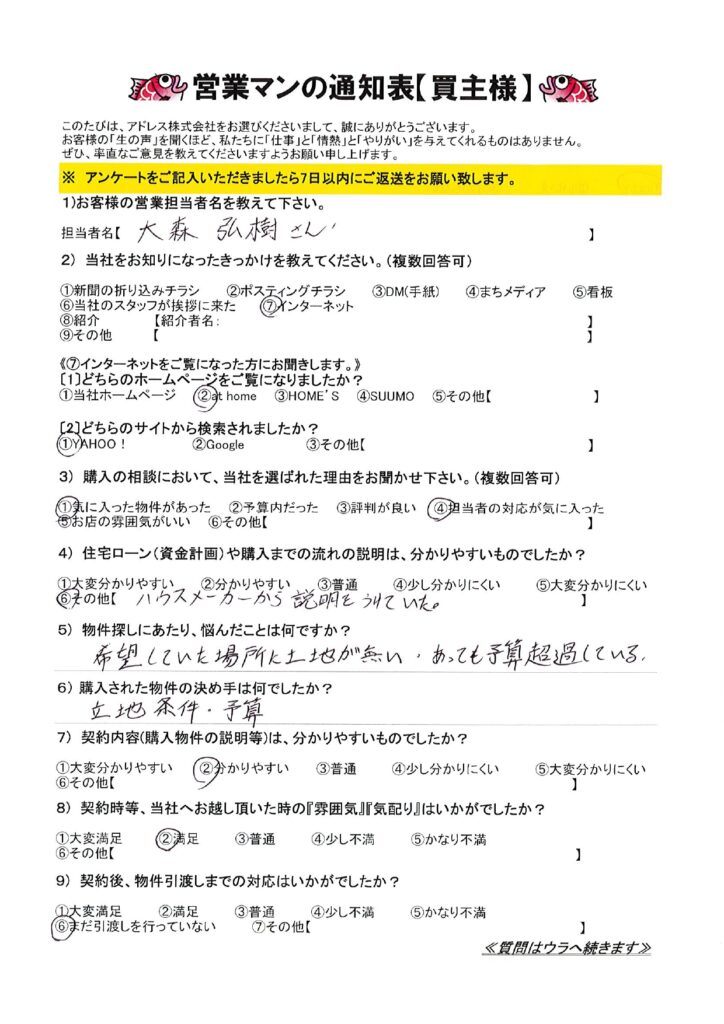 営業マンの通知表【買主様】
このたびは、アドレス株式会社をお選びくださいまして、誠にありがとうございます。
お客様の「生の声」を聞くほど、私たちに「仕事」と「情熱」と「やりがい」を与えてくれるものはありません。
ぜひ、率直なご意見を教えてくださいますようお願い申し上げます。
※ アンケートをご記入いただきましたら7日以内にご返送をお願い致します。
1)お客様の営業担当者名を教えて下さい。
担当者名【 大森 弘樹さん 】
2) 当社をお知りになったきっかけを教えてください。(複数回答可)
①新聞の折り込みチラシ ②ポスティングチラシ ③DM(手紙) ④まちメディア ⑤看板
⑥当社のスタッフが挨拶に来た ⑦インターネット
⑧紹介 【紹介者名: 】
⑨その他 【 】
《⑦インターネットをご覧になった方にお聞きします。》
[1]どちらのホームページをご覧になりましたか?
①当社ホームページ ②at home ③HOME'S ④SUUMO ⑤その他【 】
[2]どちらのサイトから検索されましたか?
①YAHOO! ②Google ③その他【 】
3) 購入の相談において、当社を選ばれた理由をお聞かせ下さい。(複数回答可)
①気に入った物件があった ②予算内だった ③評判が良い ④担当者の対応が気に入った
⑤お店の雰囲気がいい ⑥その他【 】
4) 住宅ローン(資金計画)や購入までの流れの説明は、分かりやすいものでしたか?
①大変分かりやすい ②分かりやすい ③普通 ④少し分かりにくい ⑤大変分かりにくい
⑥その他【 ハウスメーカーから説明をうけていた。 】
5) 物件探しにあたり、悩んだことは何ですか?
希望していた場所に土地が無い・あっても予算超過している.
6) 購入された物件の決め手は何でしたか?
立地条件・予算
7) 契約内容(購入物件の説明等)は、分かりやすいものでしたか?
①大変分かりやすい ②分かりやすい ③普通 ④少し分かりにくい ⑤大変分かりにくい
⑥その他【 】
8) 契約時等、当社へお越し頂いた時の『雰囲気』『気配り』はいかがでしたか?
①大変満足 ②満足 ③普通 ④少し不満 ⑤かなり不満
⑥その他【 】
9) 契約後、物件引渡しまでの対応はいかがでしたか?
①大変満足 ②満足 ③普通 ④少し不満 ⑤かなり不満
⑥まだ引渡しを行っていない ⑦その他【 】
≪質問はウラへ続きます≫